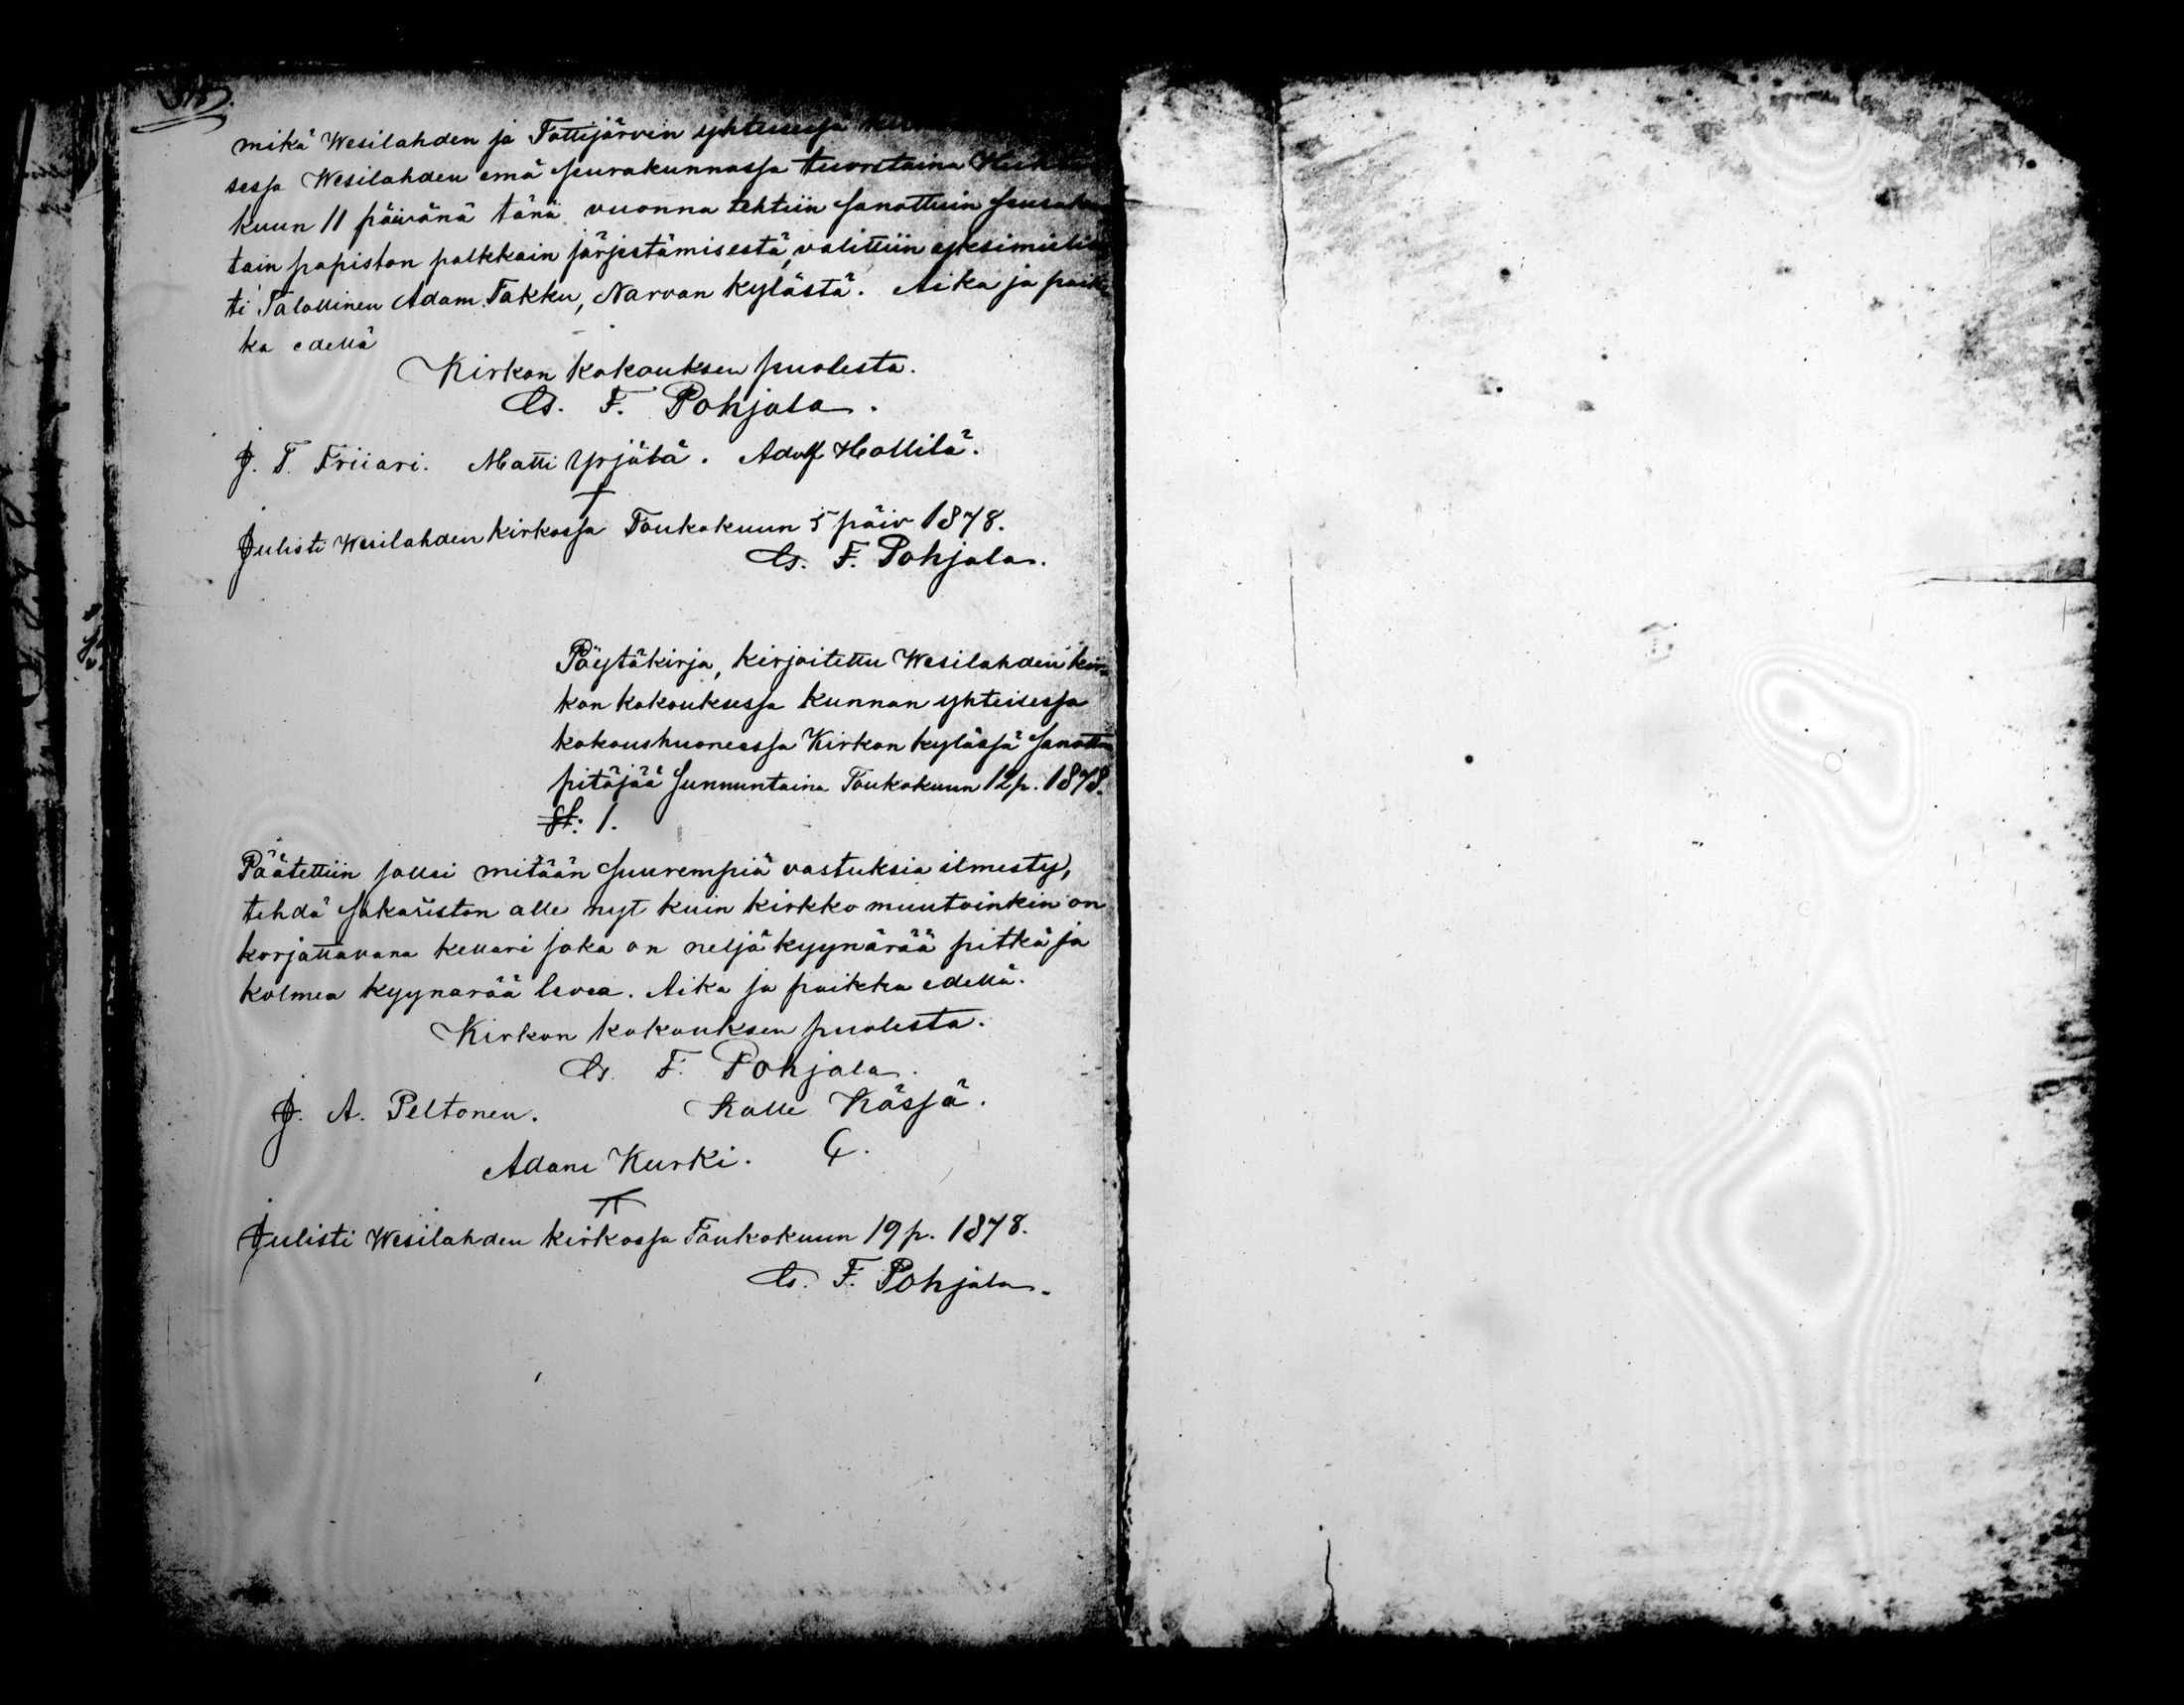 mikä Wesilahden ja Tottijärven yhteisessä
sessa Wesilahden emä seurakunnassa tuorstaina
kuun 11 päivänä tänä vuonna tehtiin sanottuin
tain papiston palkkain järjestämisestä, valittiin yksimielis
ti Talollinen Adam Takku, Narvan kylästä. Aika ja paik
ka edellä
Kirkon kokouksen puolesta.
Cs. F. Pohjala.
J. T. Friiari. Matti Yrjälä. Adolf Hallilä.
Julisti Wesilahden kirkossa Toukokuun 5 päiv 1878.
Cs. F. Pohjala.
Pöytäkirja, kirjoitettu Wesilahden kir=
kon kokouksessa kunnan yhteisessa
kokoushuoneessa Kirkon kylässä sanottua
pitäjää sunnuntaina Toukokuun 12 p. 1878.
§: 1.
Päätettiin jollei mitään suurempiä vastuksia ilmesty,
tehdä sakariston alle nyt kuin kirkko muutoinkin on
korjattavana kellari joka on neljä kyynärää pitkä ja
kolmea kyynarää levea. Aika ja paikka edellä.
Kirkon kokouksen puolesta.
Cs. F. Pohjala.
J. A. Peltonen. Kalle Kässä.
Adam Kurki.
Julisti Wesilahden kirkossa Toukokuun 19 p. 1878.
Cs. F. Pohjala.